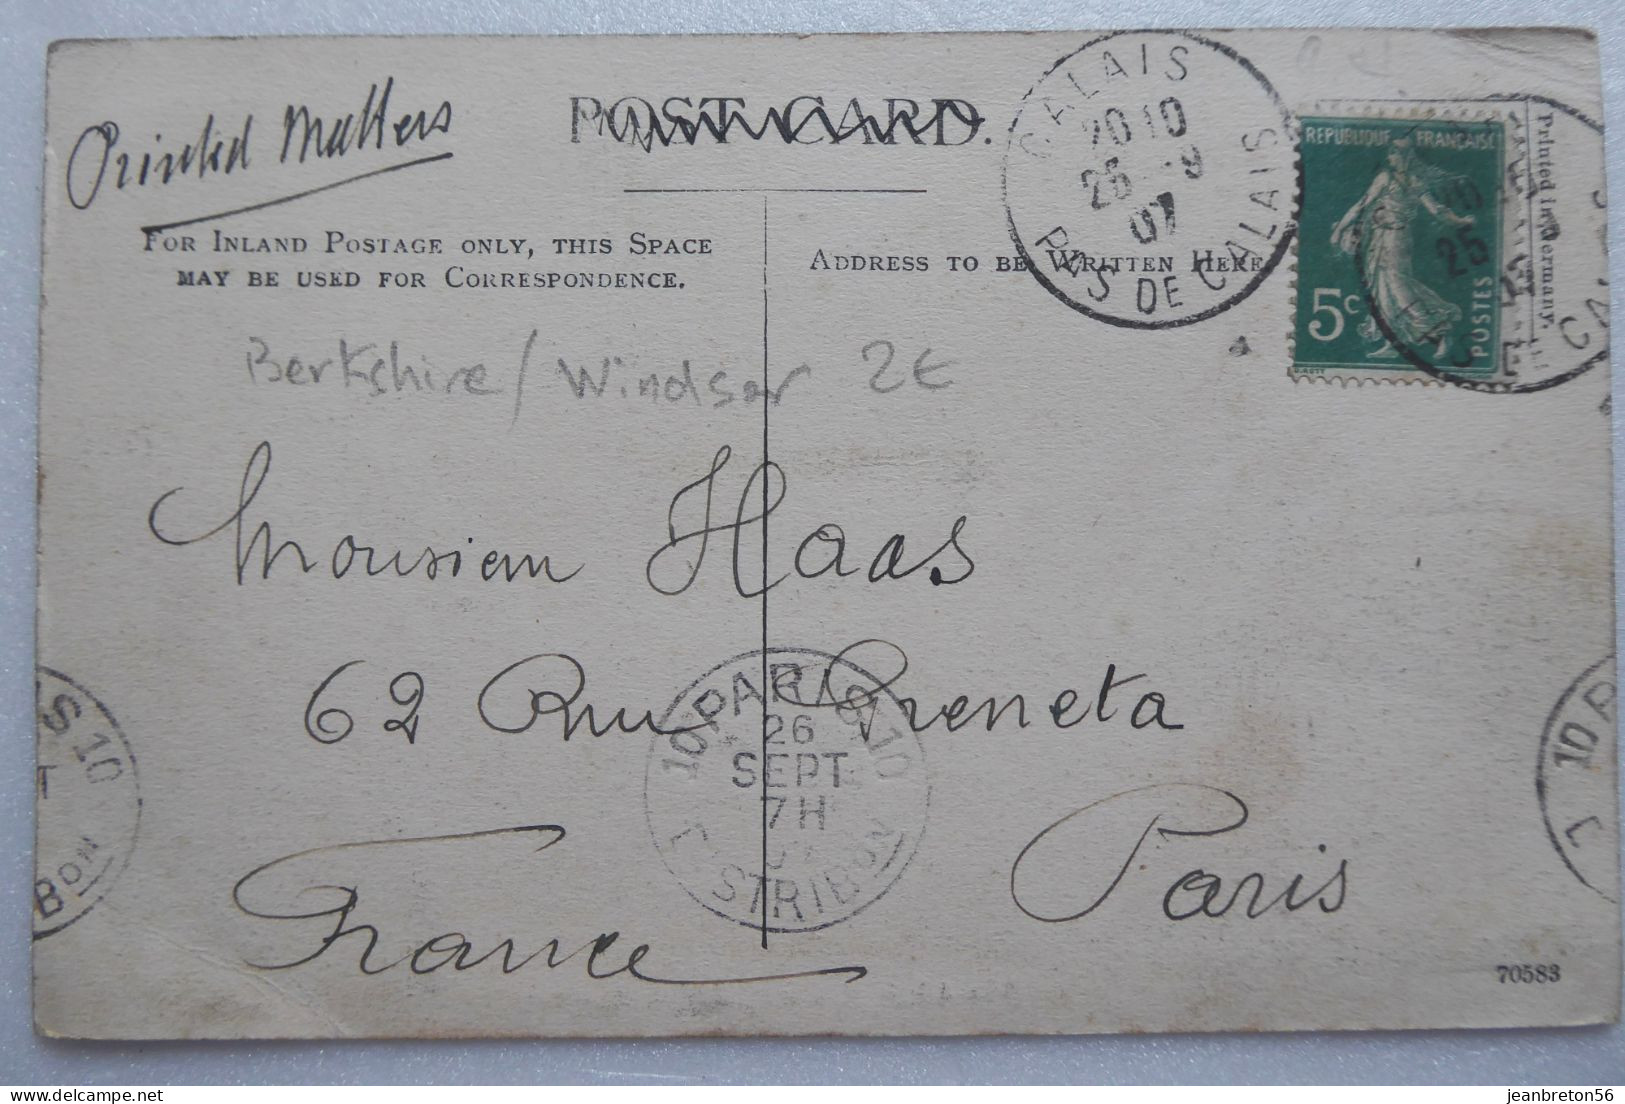 Printed Matters
POST CARD.
FOR INLAND POSTAGE ONLY, THIS SPACE
MAY BE USED FOR CORRESPONDENCE.
ADDRESS TO BE WRITTEN HERE
CALAIS
20 10
25 -9
07
PAS DE CALAIS
REPUBLIQUE FRANÇAISE
5c
POSTES
Printed in Germany.
25
Berkshire / Windsor 2€
Monsieur Haas
62 Rue Greneta
Paris
France
10 PARIS 10
26
SEPT
7H
DISTRIBON
S 10
BON
10 P
70583
delcampe.net
jeanbreton56